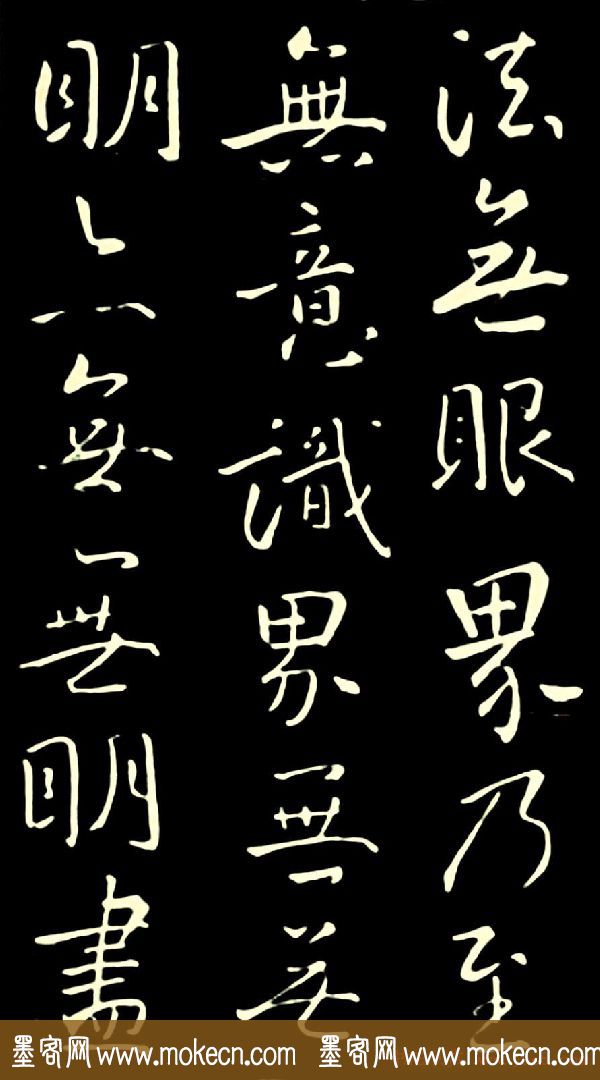 法無眼界乃至
無意識界無無
明亦無無明盡
墨客网 www.mokecn.com 墨客网 www.mokecn.com